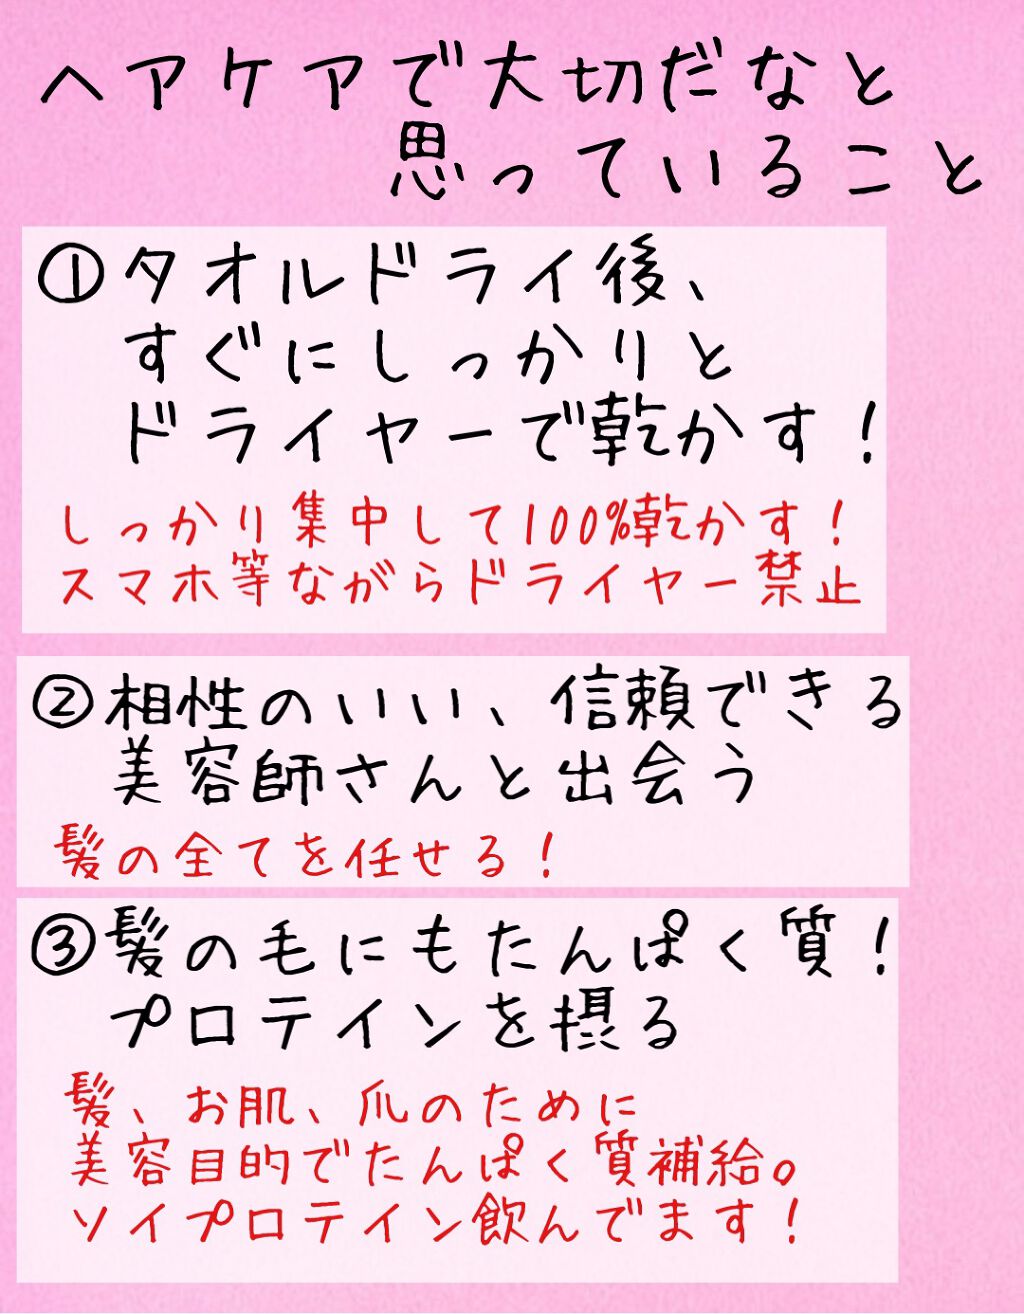 ヘアケアで大切だなと
思っていること
①タオルドライ後、
すぐにしっかりと
ドライヤーで乾かす！
しっかり集中して100%乾かす！
スマホ等ながらドライヤー禁止
②相性のいい、信頼できる
美容師さんと出会う
髪の全てを任せる！
③髪の毛にもたんぱく質！
プロテインを摂る
髪、お肌、爪のために
美容目的でたんぱく質補給。
ソイプロテイン飲んでます！